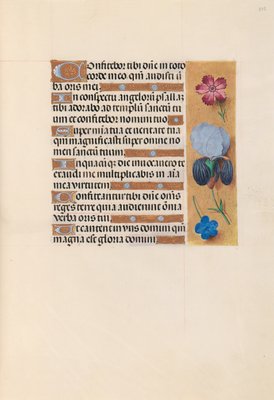 Confitebor tibi in toto
corde meo qm̄ audisti v̄
ba oris mei
In conspectu angeloru psallā
tibi adorabo ad templū sanctū tu
um et confitebor nomini tuo
Super mīa tua et veritate tua
qm̄ magnificasti super omne no
men sanctū tuum
In quacūq; die invocavero te
exaudi me multiplicabis in aīa
mea virtutem
Confiteantur tibi dne om̄s
reges terre quia audierunt om̄ia
verba oris tui
Et cantent in viis domini qm̄
magna est gloria domini